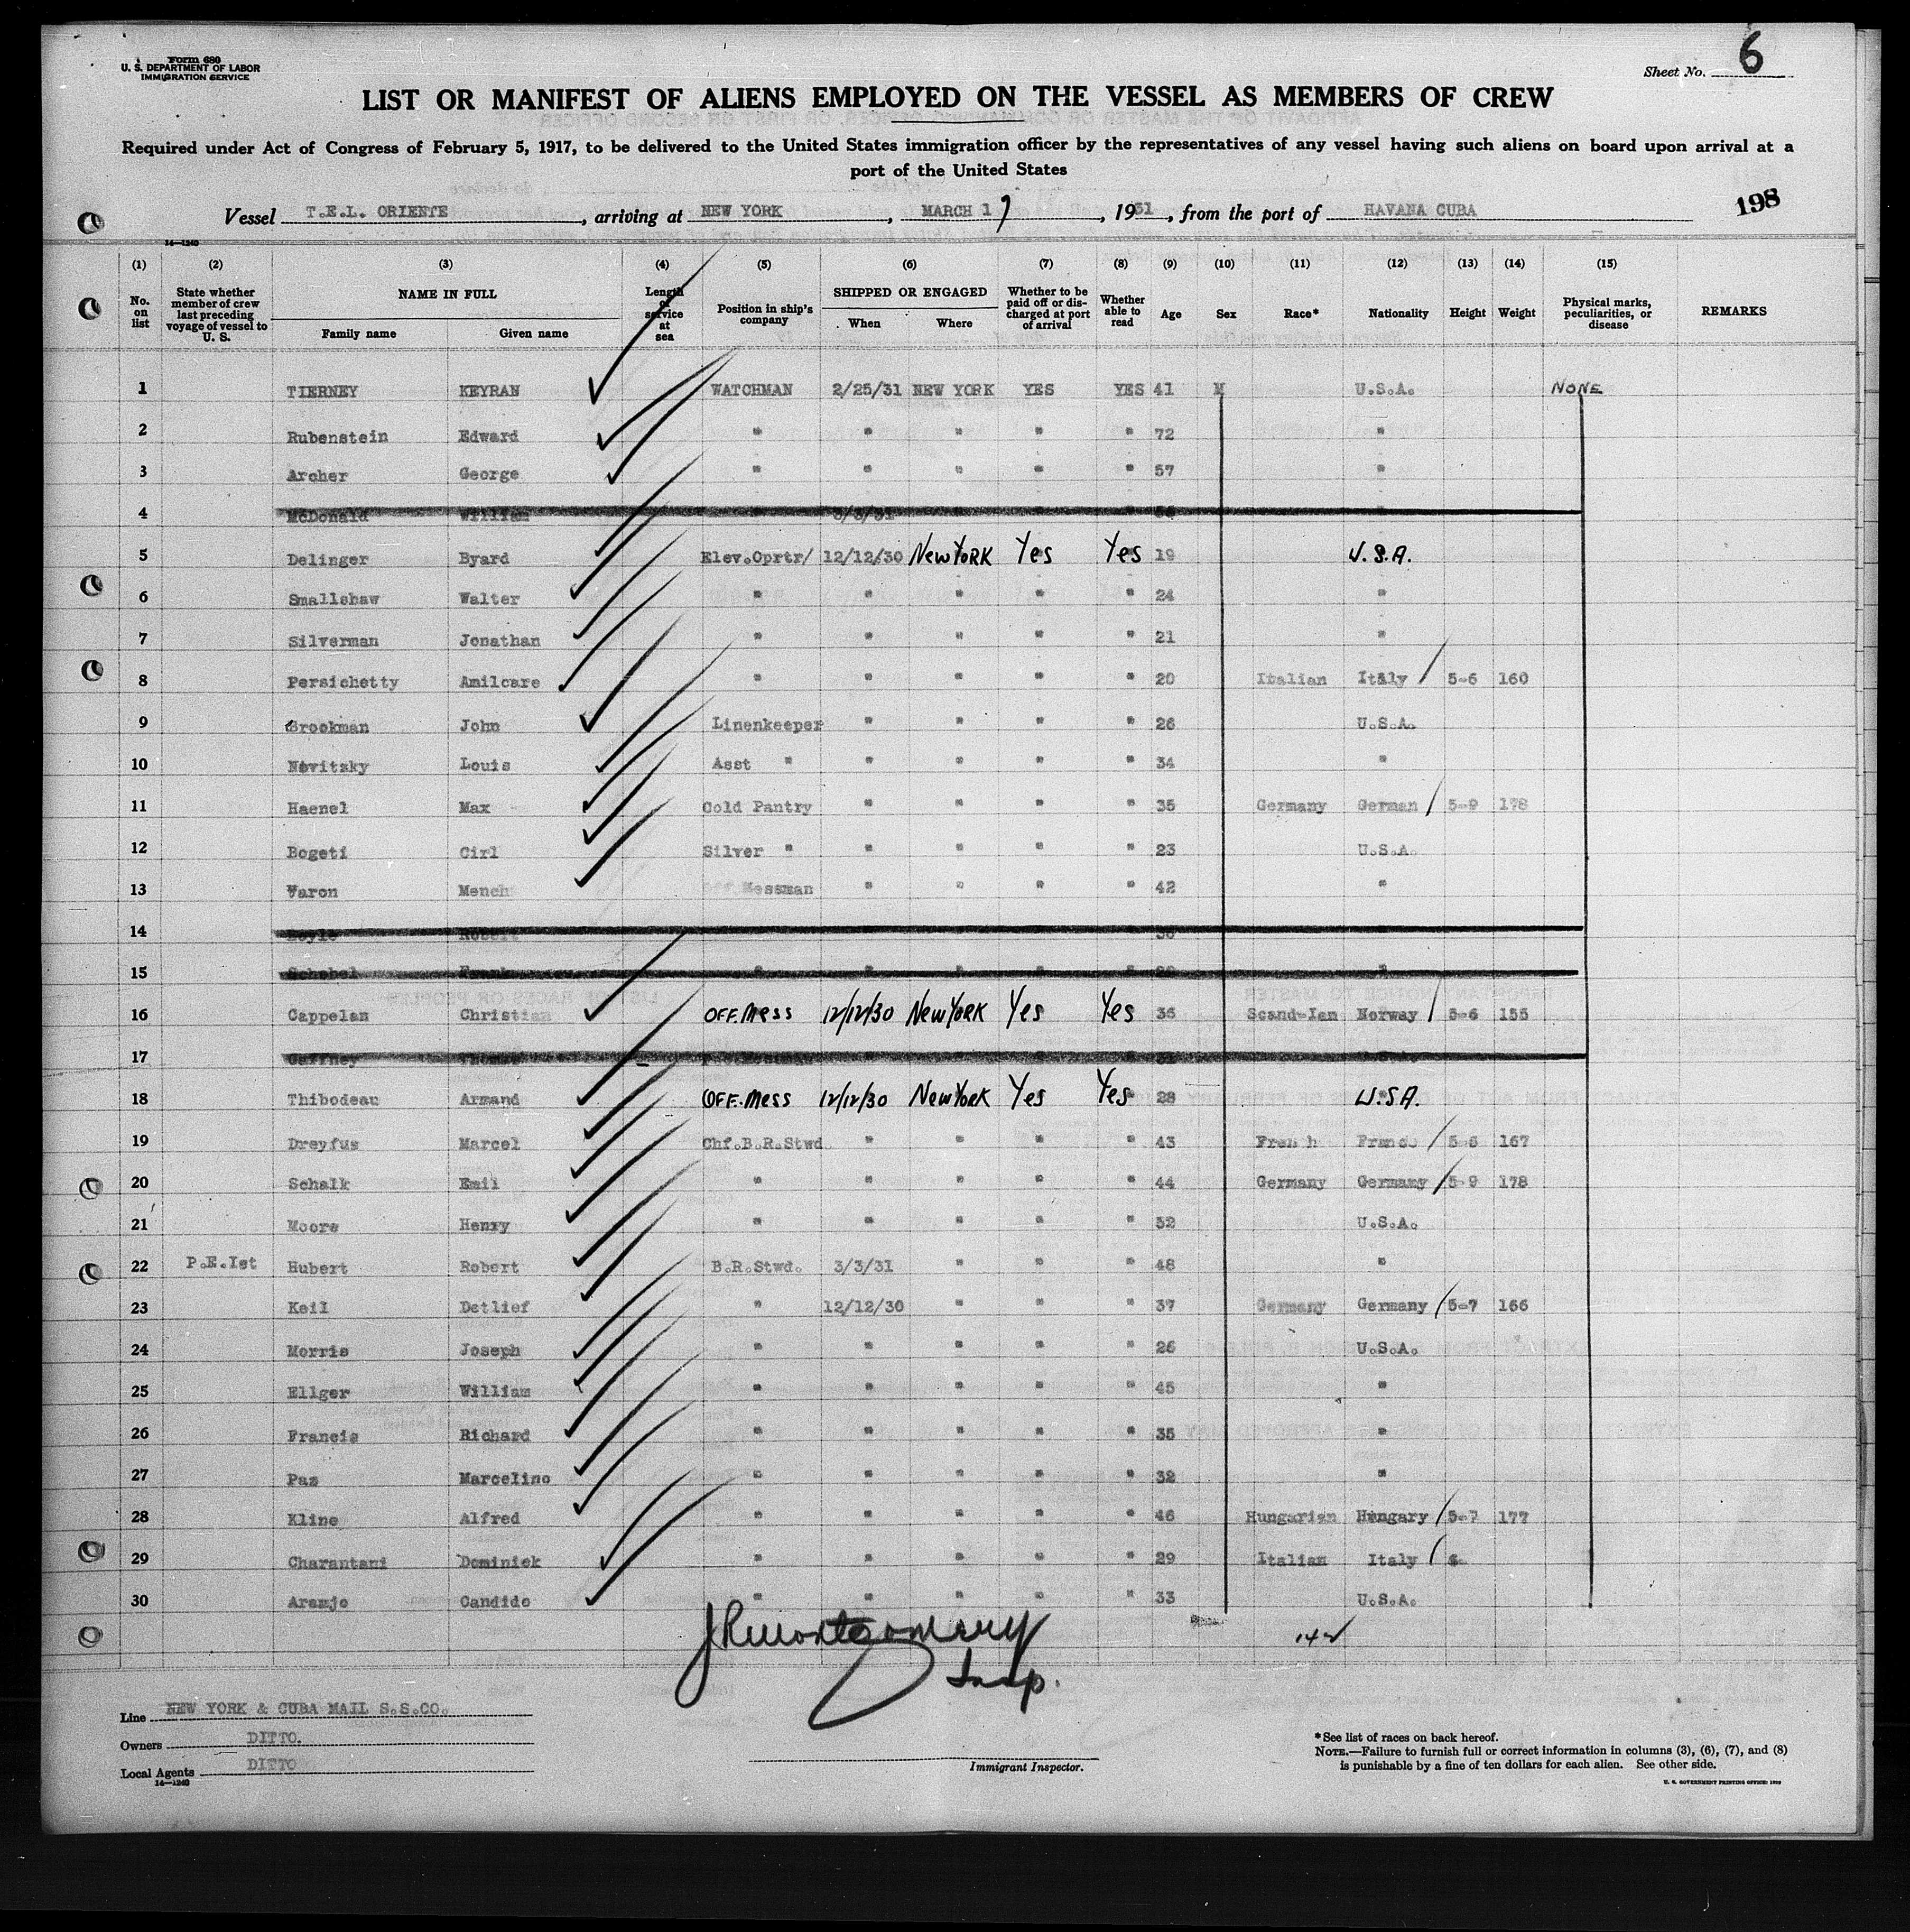 Form 680
U. S. DEPARTMENT OF LABOR
IMMIGRATION SERVICE
Sheet No. 6
LIST OR MANIFEST OF ALIENS EMPLOYED ON THE VESSEL AS MEMBERS OF CREW
Required under Act of Congress of February 5, 1917, to be delivered to the United States immigration officer by the representatives of any vessel having such aliens on board upon arrival at a
port of the United States
198
Vessel T.E.L. ORIENTE, arriving at NEW YORK, MARCH 17, 1931, from the port of HAVANA CUBA
14—1240
(1) (2) (3) (4) (5) (6) (7) (8) (9) (10) (11) (12) (13) (14) (15)
No. on list State whether member of crew last preceding voyage of vessel to U. S. NAME IN FULL Family name Given name Length of service at sea Position in ship's company SHIPPED OR ENGAGED When Where Whether to be paid off or discharged at port of arrival Whether able to read Age Sex Race* Nationality Height Weight Physical marks, peculiarities, or disease REMARKS
1 TIERNEY KEYRAN WATCHMAN 2/25/31 NEW YORK YES YES 41 M U.S.A. NONE
2 Rubenstein Edward " " " " " 72 "
3 Archer George " " " " " 57 "
4 McDonald William " 3/3/31
5 Delinger Byard Elev.Oprtr/ 12/12/30 New York Yes Yes 19 U.S.A.
6 Smallshaw Walter " " " " " 24 "
7 Silverman Jonathan " " " " " 21 "
8 Persichetty Amilcare " " " " " 20 Italian Italy 5-6 160
9 Brookman John Linenkeeper " " " " 26 U.S.A.
10 Novitsky Louis Asst " " " " " 34 "
11 Haenel Max Cold Pantry " " " " 35 Germany German 5-9 178
12 Bogeti Cirl Silver " " " " " 23 U.S.A.
13 Varon Mench Off.Messman " " " " 42 "
14 Doyle Robert
15 Schebel Frank " " " " " "
16 Cappelan Christian OFF.Mess 12/12/30 New York Yes Yes 36 Scand-Ian Norway 5-6 155
17 Gaffney Thomas
18 Thibodeau Armand OFF.Mess 12/12/30 New York Yes Yes 28 U.S.A.
19 Dreyfus Marcel Chf.B.R.Stwd " " " " 43 French France 5-6 167
20 Schalk Emil " " " " " 44 Germany Germany 5-9 178
21 Moore Henry " " " " " 32 U.S.A.
22 P.E.Ist Hubert Robert B.R.Stwd. 3/3/31 " " " 48 "
23 Keil Detlief " 12/12/30 " " " 37 Germany Germany 5-7 166
24 Morris Joseph " " " " " 26 U.S.A.
25 Ellger William " " " " " 45 "
26 Francis Richard " " " " " 35 "
27 Paz Marcelino " " " " " 32 "
28 Kline Alfred " " " " " 46 Hungarian Hungary 5-7 177
29 Charantani Dominick " " " " " 29 Italian Italy
30 Aramjo Candido " " " " " 33 U.S.A.
JRMontgomery
Insp.
Line NEW YORK & CUBA MAIL S.S.CO.
Owners DITTO.
Local Agents DITTO
14—1240
Immigrant Inspector.
*See list of races on back hereof.
NOTE.—Failure to furnish full or correct information in columns (3), (6), (7), and (8)
is punishable by a fine of ten dollars for each alien. See other side.
U. S. GOVERNMENT PRINTING OFFICE: 1929